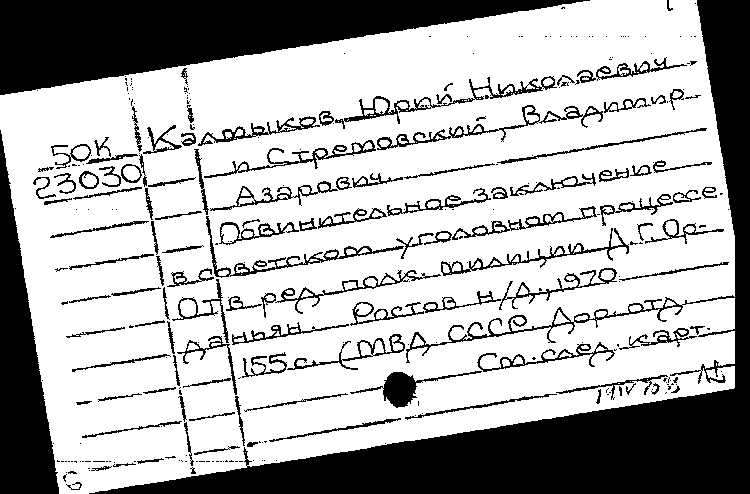 50К Калмыков, Юрий Николаевич
23030 и Стремовский, Владимир
Азарович.
Обвинительное заключение
в советском уголовном процессе.
Отв ред. полк. милиции Д.Г. Ор-
даньян. Ростов н/Д., 1970
155 с. (МВД СССР. Дор. отд.
См. след. карт.